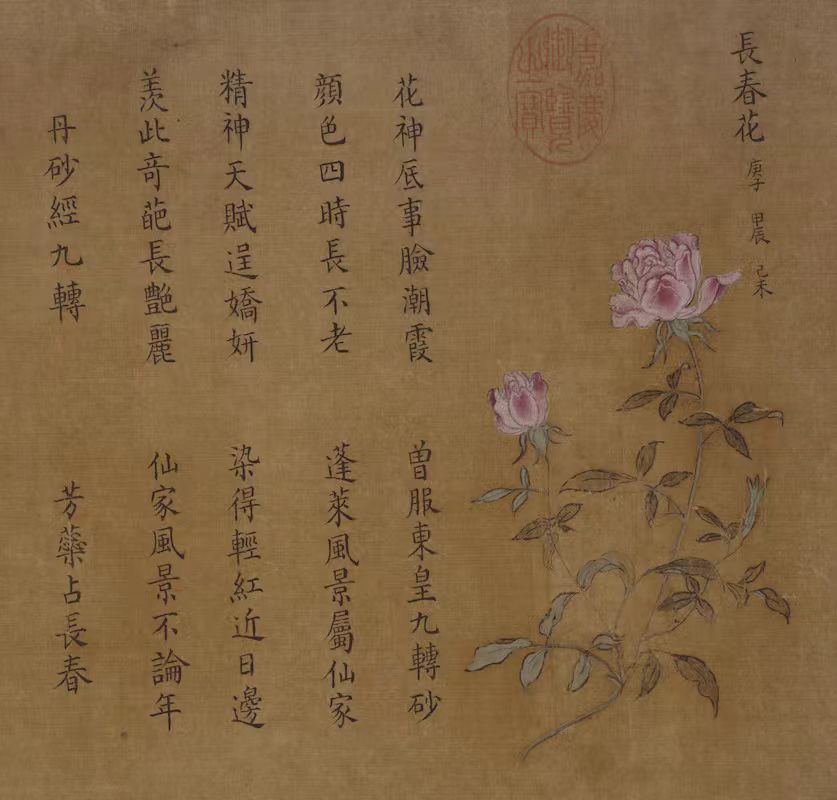 長春花 庚子 甲辰 己未
嘉慶
御覽
之寶
花神底事臉潮霞 曾服東皇九轉砂
顏色四時長不老 蓬萊風景屬仙家
精神天賦逞嬌妍 染得輕紅近日邊
羨此奇葩長艷麗 仙家風景不論年
丹砂經九轉 芳蘂占長春